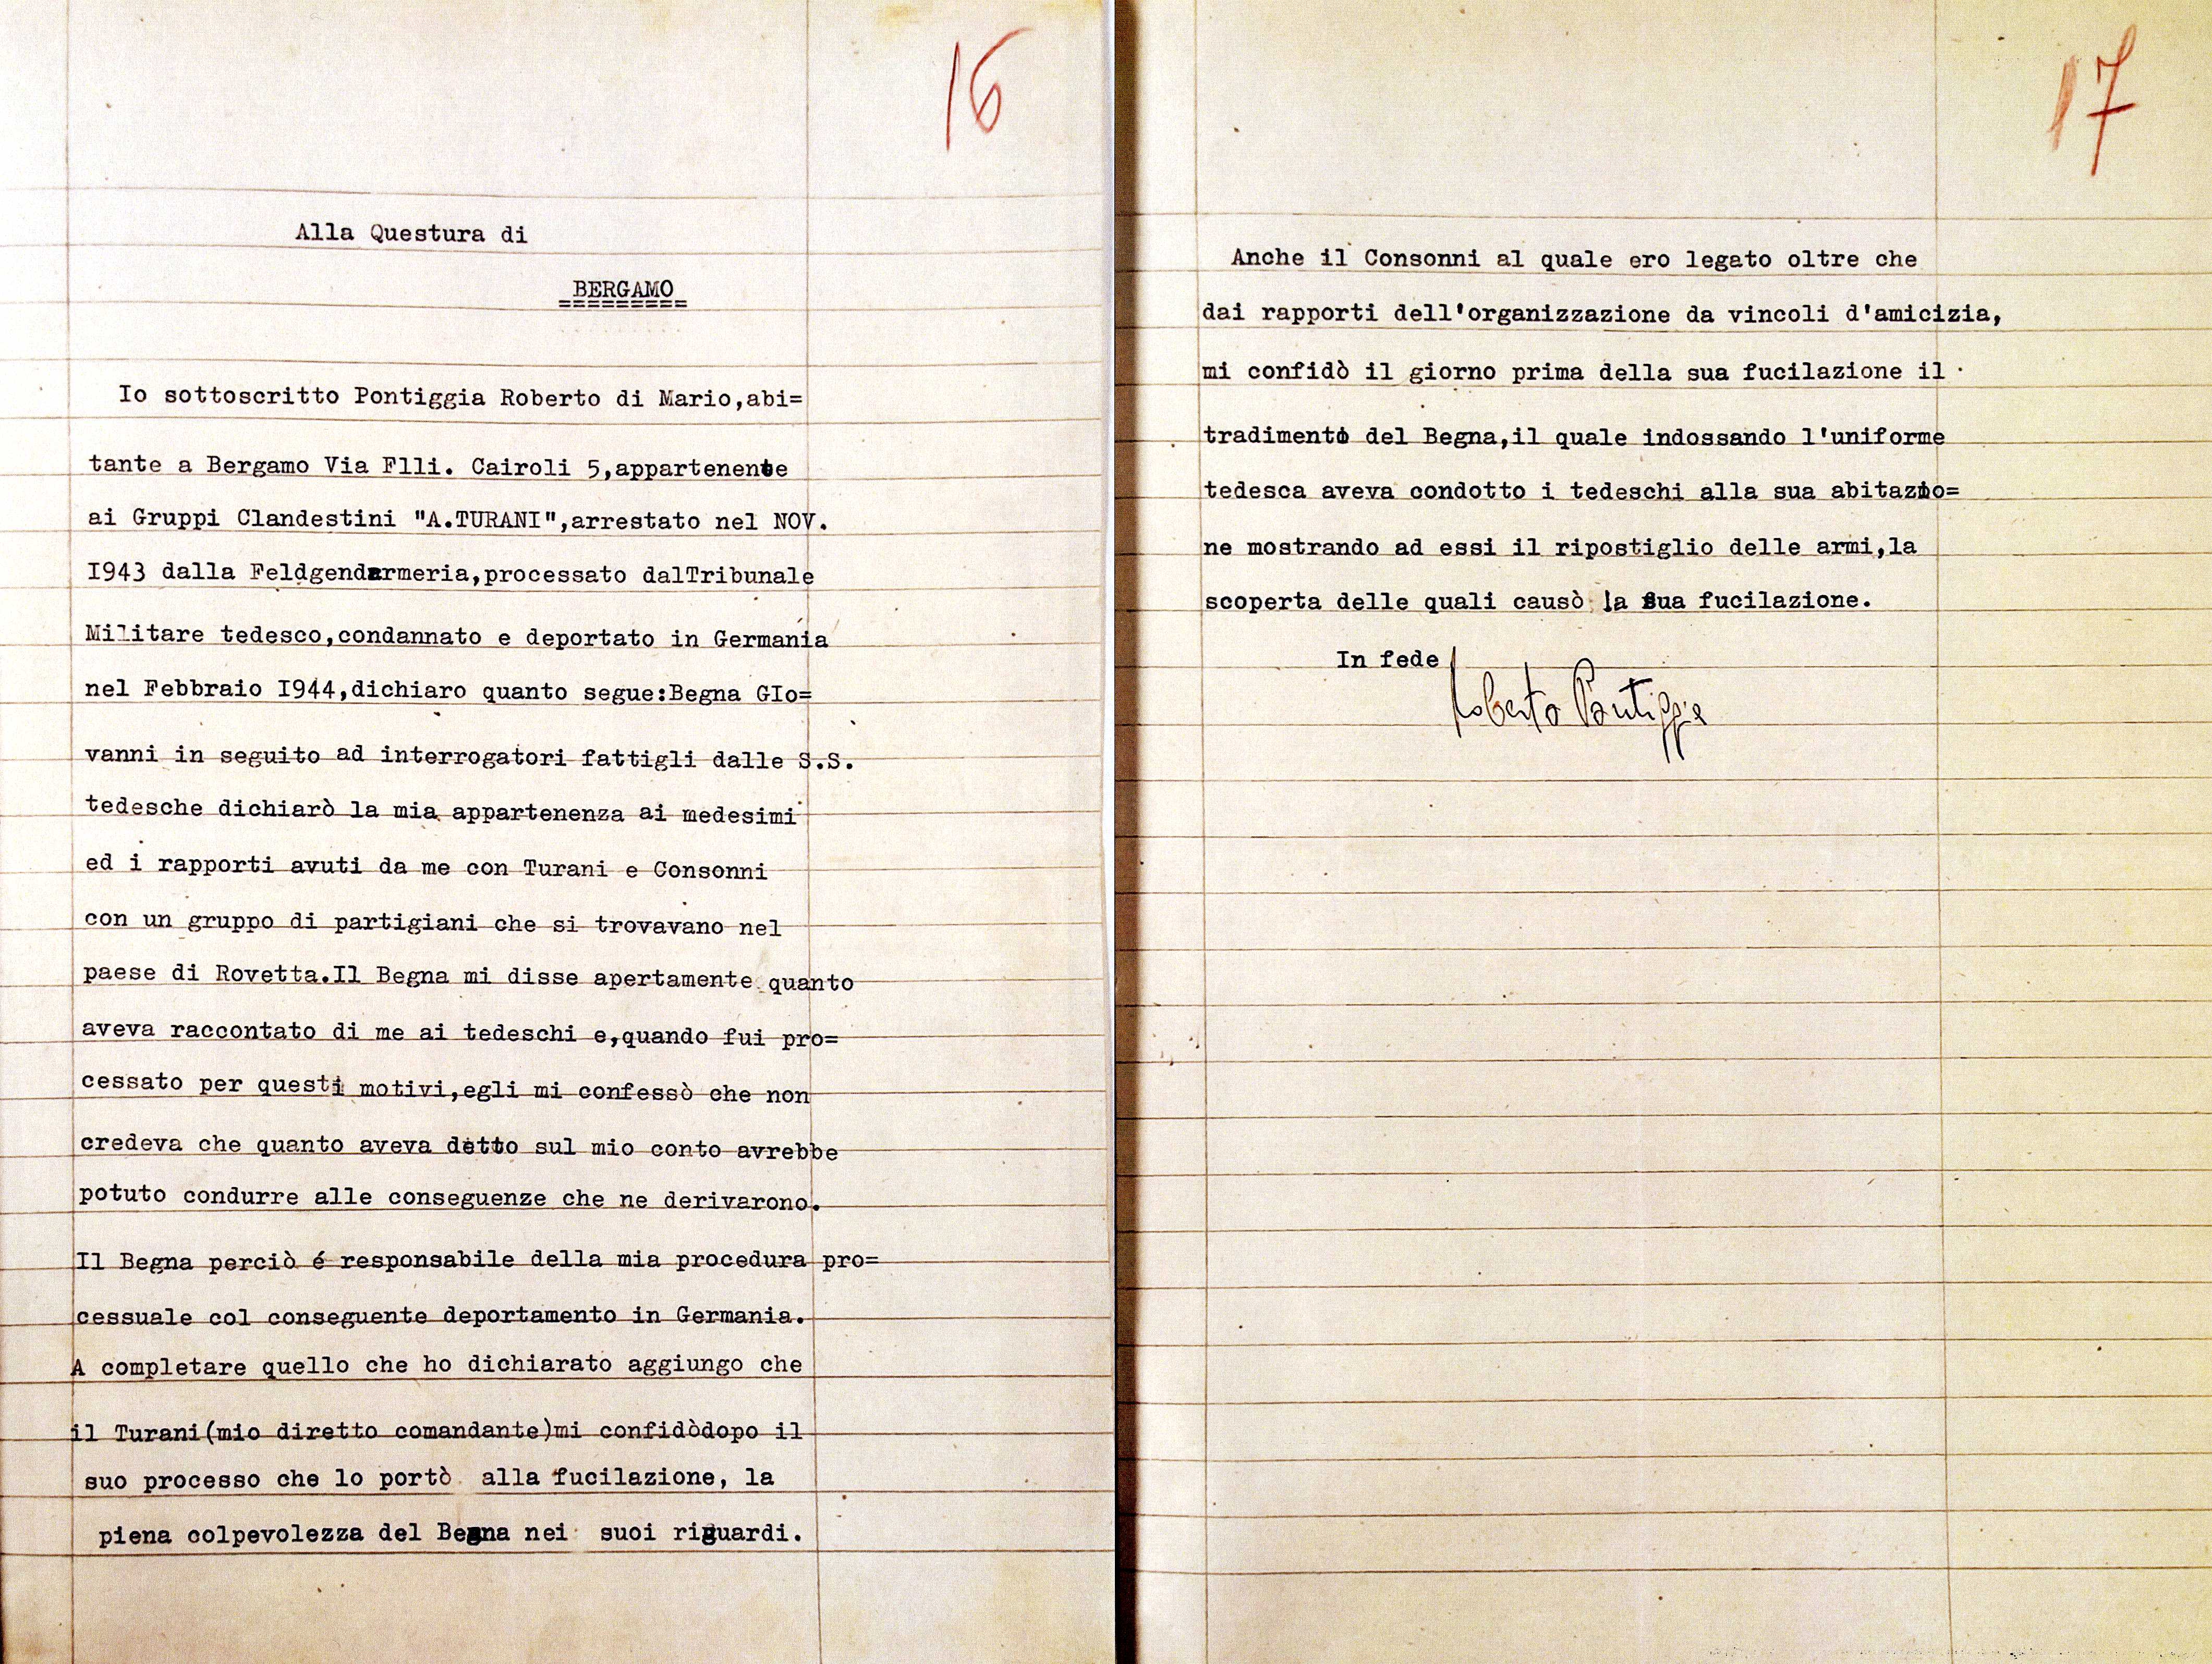 16
Alla Questura di
BERGAMO
=========
Io sottoscritto Pontiggia Roberto di Mario,abi=
tante a Bergamo Via Flli. Cairoli 5,appartenente
ai Gruppi Clandestini "A.TURANI",arrestato nel NOV.
I943 dalla Feldgendarmeria,processato dalTribunale
Militare tedesco,condannato e deportato in Germania
nel Febbraio I944,dichiaro quanto segue:Begna GIo=
vanni in seguito ad interrogatori fattigli dalle S.S.
tedesche dichiarò la mia appartenenza ai medesimi
ed i rapporti avuti da me con Turani e Consonni
con un gruppo di partigiani che si trovavano nel
paese di Rovetta.Il Begna mi disse apertamente quanto
aveva raccontato di me ai tedeschi e,quando fui pro=
cessato per questi motivi,egli mi confessò che non
credeva che quanto aveva detto sul mio conto avrebbe
potuto condurre alle conseguenze che ne derivarono.
Il Begna perciò é responsabile della mia procedura pro=
cessuale col conseguente deportamento in Germania.
A completare quello che ho dichiarato aggiungo che
il Turani(mio diretto comandante)mi confidòdopo il
suo processo che lo portò alla fucilazione, la
piena colpevolezza del Begna nei suoi riguardi.
17
Anche il Consonni al quale ero legato oltre che
dai rapporti dell'organizzazione da vincoli d'amicizia,
mi confidò il giorno prima della sua fucilazione il
tradimento del Begna,il quale indossando l'uniforme
tedesca aveva condotto i tedeschi alla sua abitazio=
ne mostrando ad essi il ripostiglio delle armi,la
scoperta delle quali causò la sua fucilazione.
In fede
Roberto Pontiggia